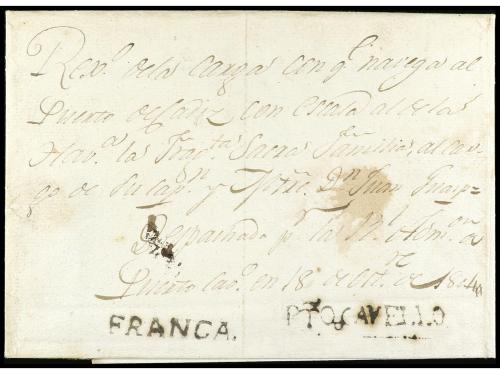 Rex.º de la carga con q.e navega al
Puerto de Cadiz con escala al de la
Hav.a la Frag.ta Sacra Familia, al car-
go de su cap.n y Mtre. D.n Juan
Despachado p.r las R.s Adm.on de
Puerto Cav.o en 18 de Oct.re de 1804
FRANCA. PTOCAVELLO